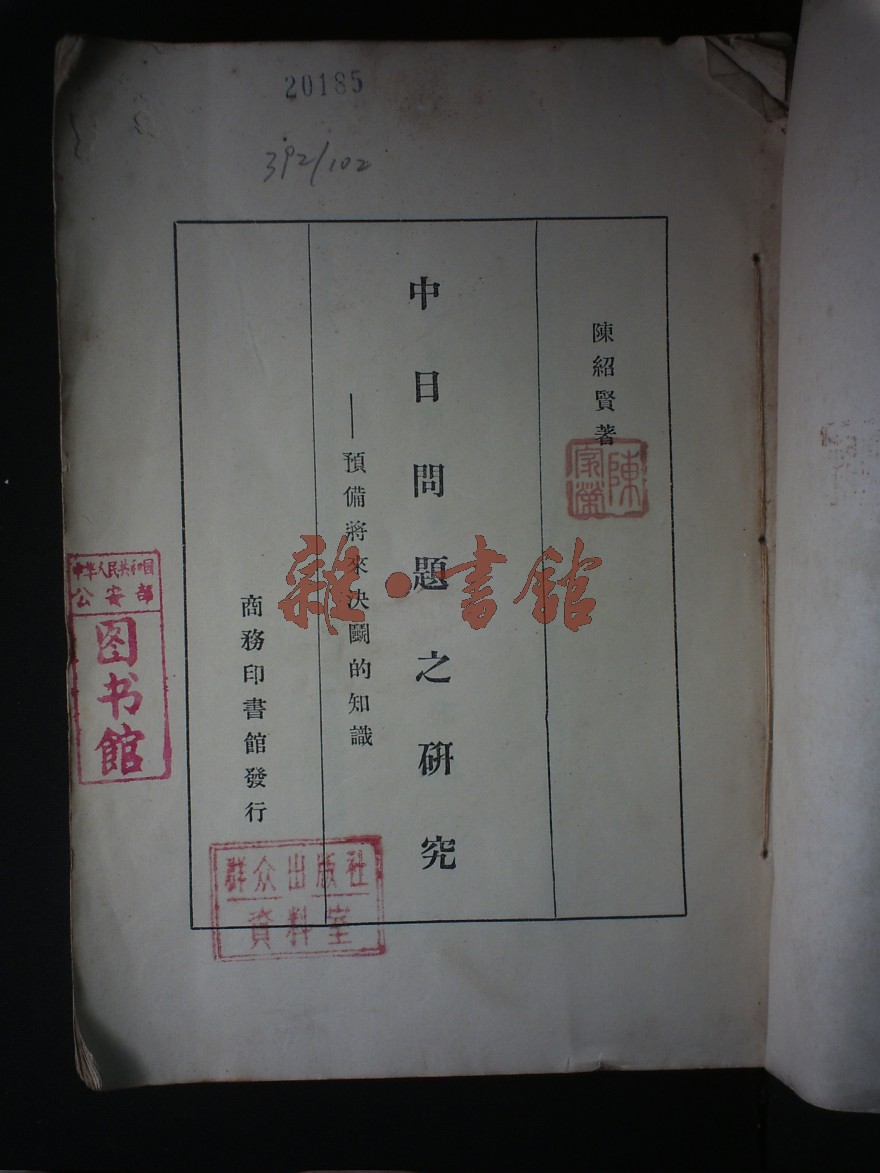 20185
392/102
陳紹賢著
陳家榮
中日問題之硏究
——預備將來決鬪的知識
商務印書館發行
雜·書館
中华人民共和国
公安部
图书馆
群众出版社
資料室